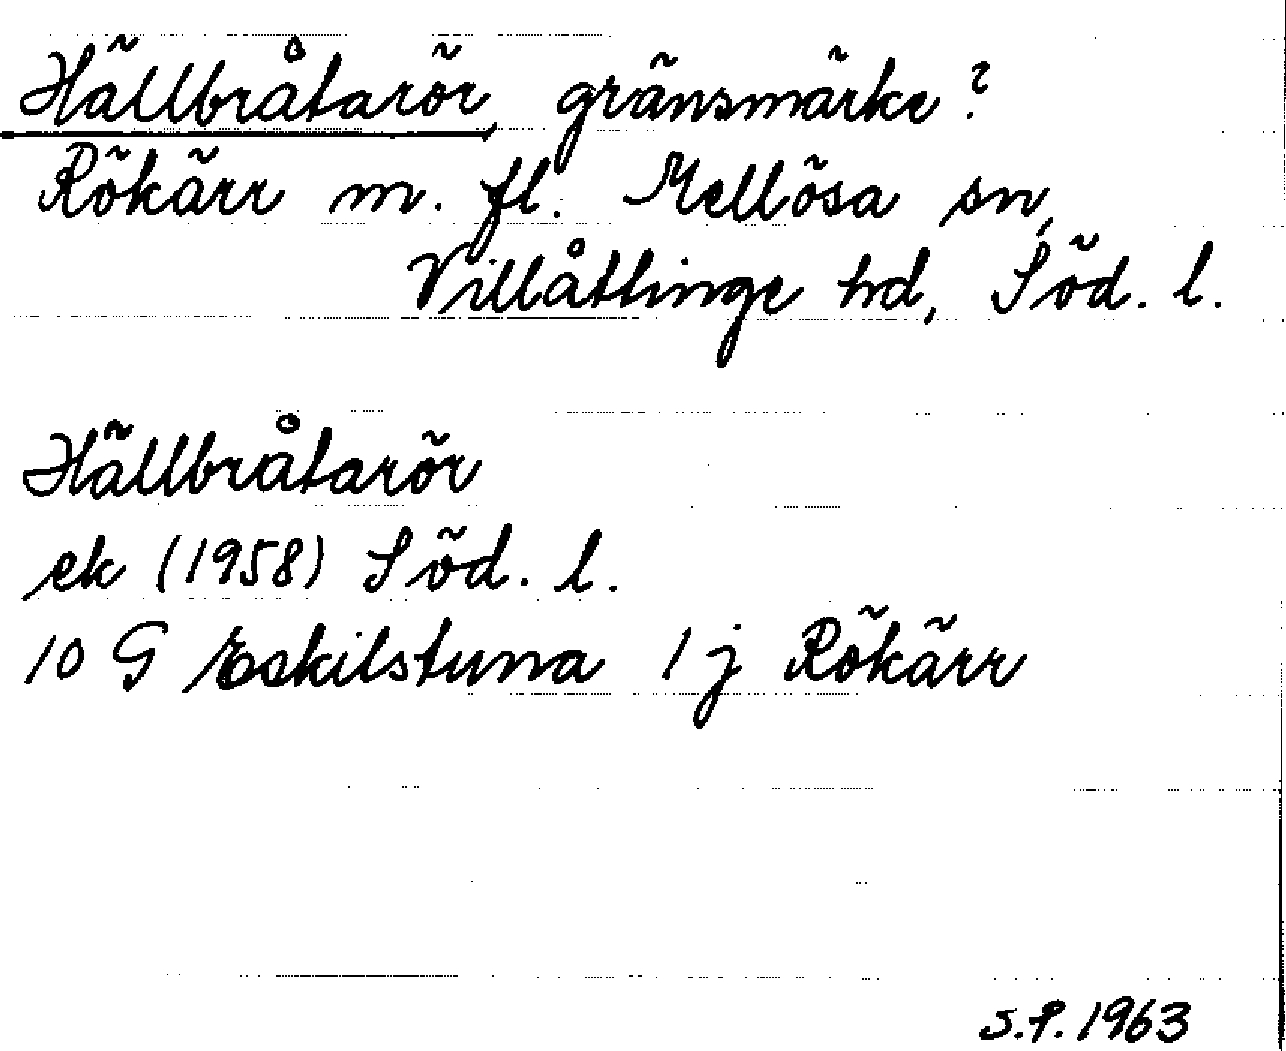 Hällbråtarör, gränsmärke?
Rökärr m. fl. Mellösa sn,
Villåttinge hd, Söd. l.
Hällbråtarör
ek (1958) Söd. l.
10 G Eskilstuna 1 j Rökärr
S.P. 1963